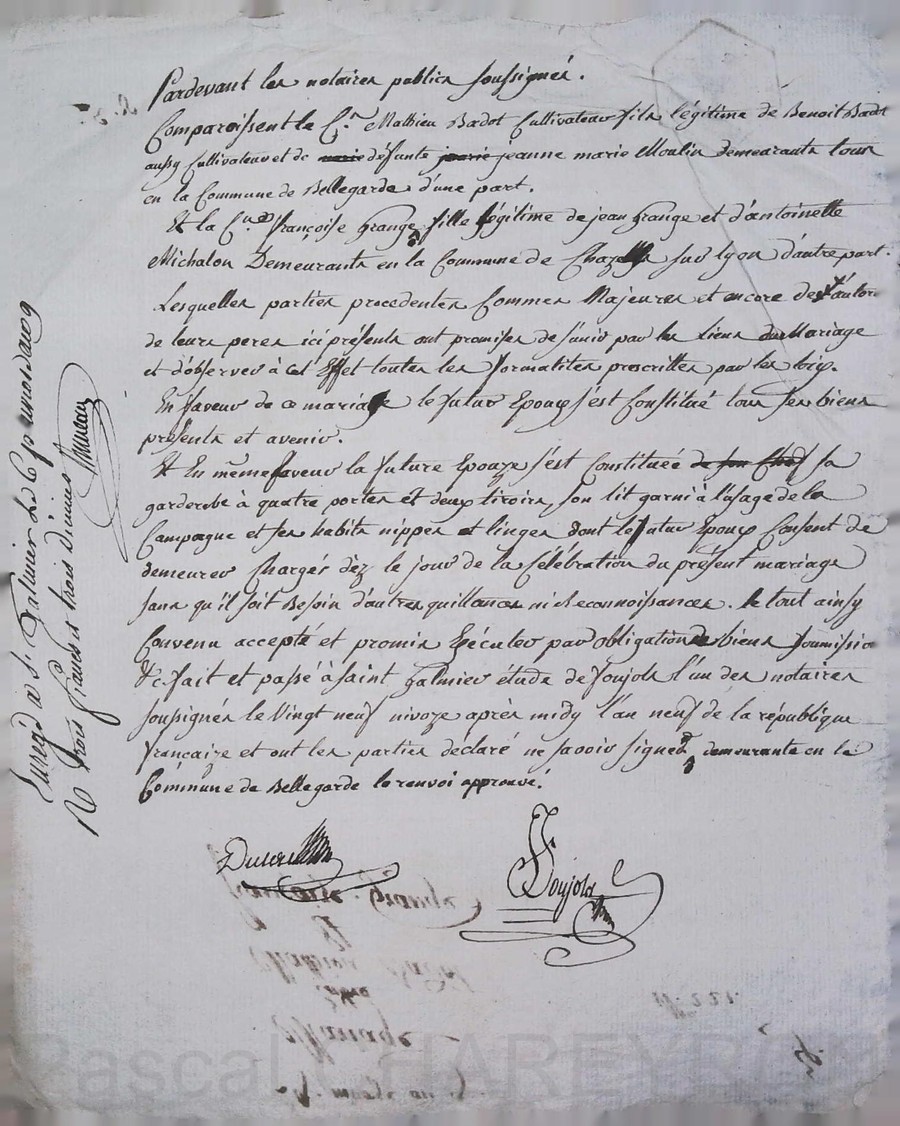 Pardevant les notaires publics soussignés.
Comparoissent le C.en Mathieu Badot Cultivateur fils légitime de Benoit Badot
aussy Cultivateur et de marie défunte jeanne marie Moulin demeurants tous
en la Commune de Bellegarde d'une part.
Et la C.nne françoise Grange fille légitime de jean Grange et d'antoinette
Michalon Demeurants en la Commune de Chazelles sur lyon d'autre part.
Lesquelles parties procedentes Commes Majeures et encore de l'autor
de leurs peres ici présents ont promises de s'unir par les Liens du Mariage
et d'observer à Cet Effet toutes les formalites prescrittes par les loix.
En faveur de ce mariage le futur Epoux s'est Constitué tous ses biens
présents et avenir.
Et En même faveur la future Epouze s'est Constituée de son Chef sa
garderobe à quatre portes et deux tiroirs, son lit garni à l'usage de la
Campagne et ses habits nippes et linges dont le futur Epoux Consent de
demeurer Chargés dèz le jour de la Célébration du présent mariage
sans qu'il soit Besoin d'autres quittances ni Reconnoissances. le tout ainsy
Convenu accepté et promis Exécuter par obligation de biens soumission
&c. fait et passé à Saint Galmier étude de Soujols l'un des notaires
soussignés le Vingt neuf nivoze après midy l'an neuf de la république
française et ont les parties déclaré ne savoir signer demeurante en la
Commune de Bellegarde le renvoi approuvé.
Soujols
Enreg.é à S.t Galmier le 6 pluviose an 9
R trois francs trois dixmes
françoise Grange
Et
Mathieu Badot
Entre
Mariage
Pascal CHAREYRON